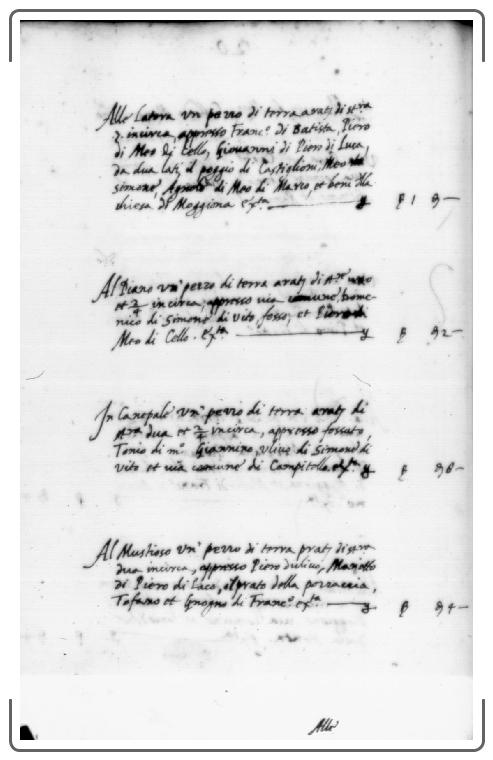 Alla Latora un pezzo di terra aratj di st.ra
3. incirca, appresso Franc.o di Batista, Piero
di Meo di Cello, Giovanni di Piero di Luca,
da dua latj, il poggio di Castiglioni, Meo di
simone, Agnolo di Meo di Marco, et beni dlla
chiesa di Moggiona ext.a
Al Piano un pezzo di terra aratj di st.ro uno
et 2/4 incirca, appresso via comune, Dome-
nico di Simone di Vito, fosso, et Piero di
Meo di Cello. ext.a
In Canepale un pezzo di terra aratj di
st.ra dua et 2/4 incirca, appresso fossato,
Tonio di m.o Giannino, Ulivo di Simone di
Vito et via comune di Campitello. ext.a
Al Mustioso un pezzo di terra pratj di st.ra
dua incirca, appresso Piero d'ulivo, Mariotto
di Piero di Laco, il prato della
Tofano et Gnogno di Franc.o ext.a
Alla